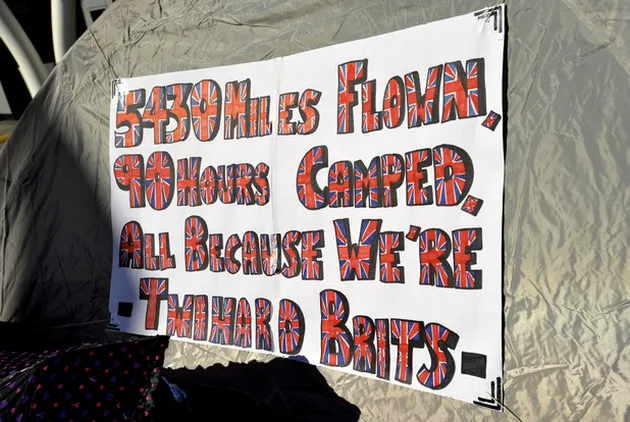 5430 Miles Flown.
90 Hours Camped.
All Because We're
-Twihard Brits-